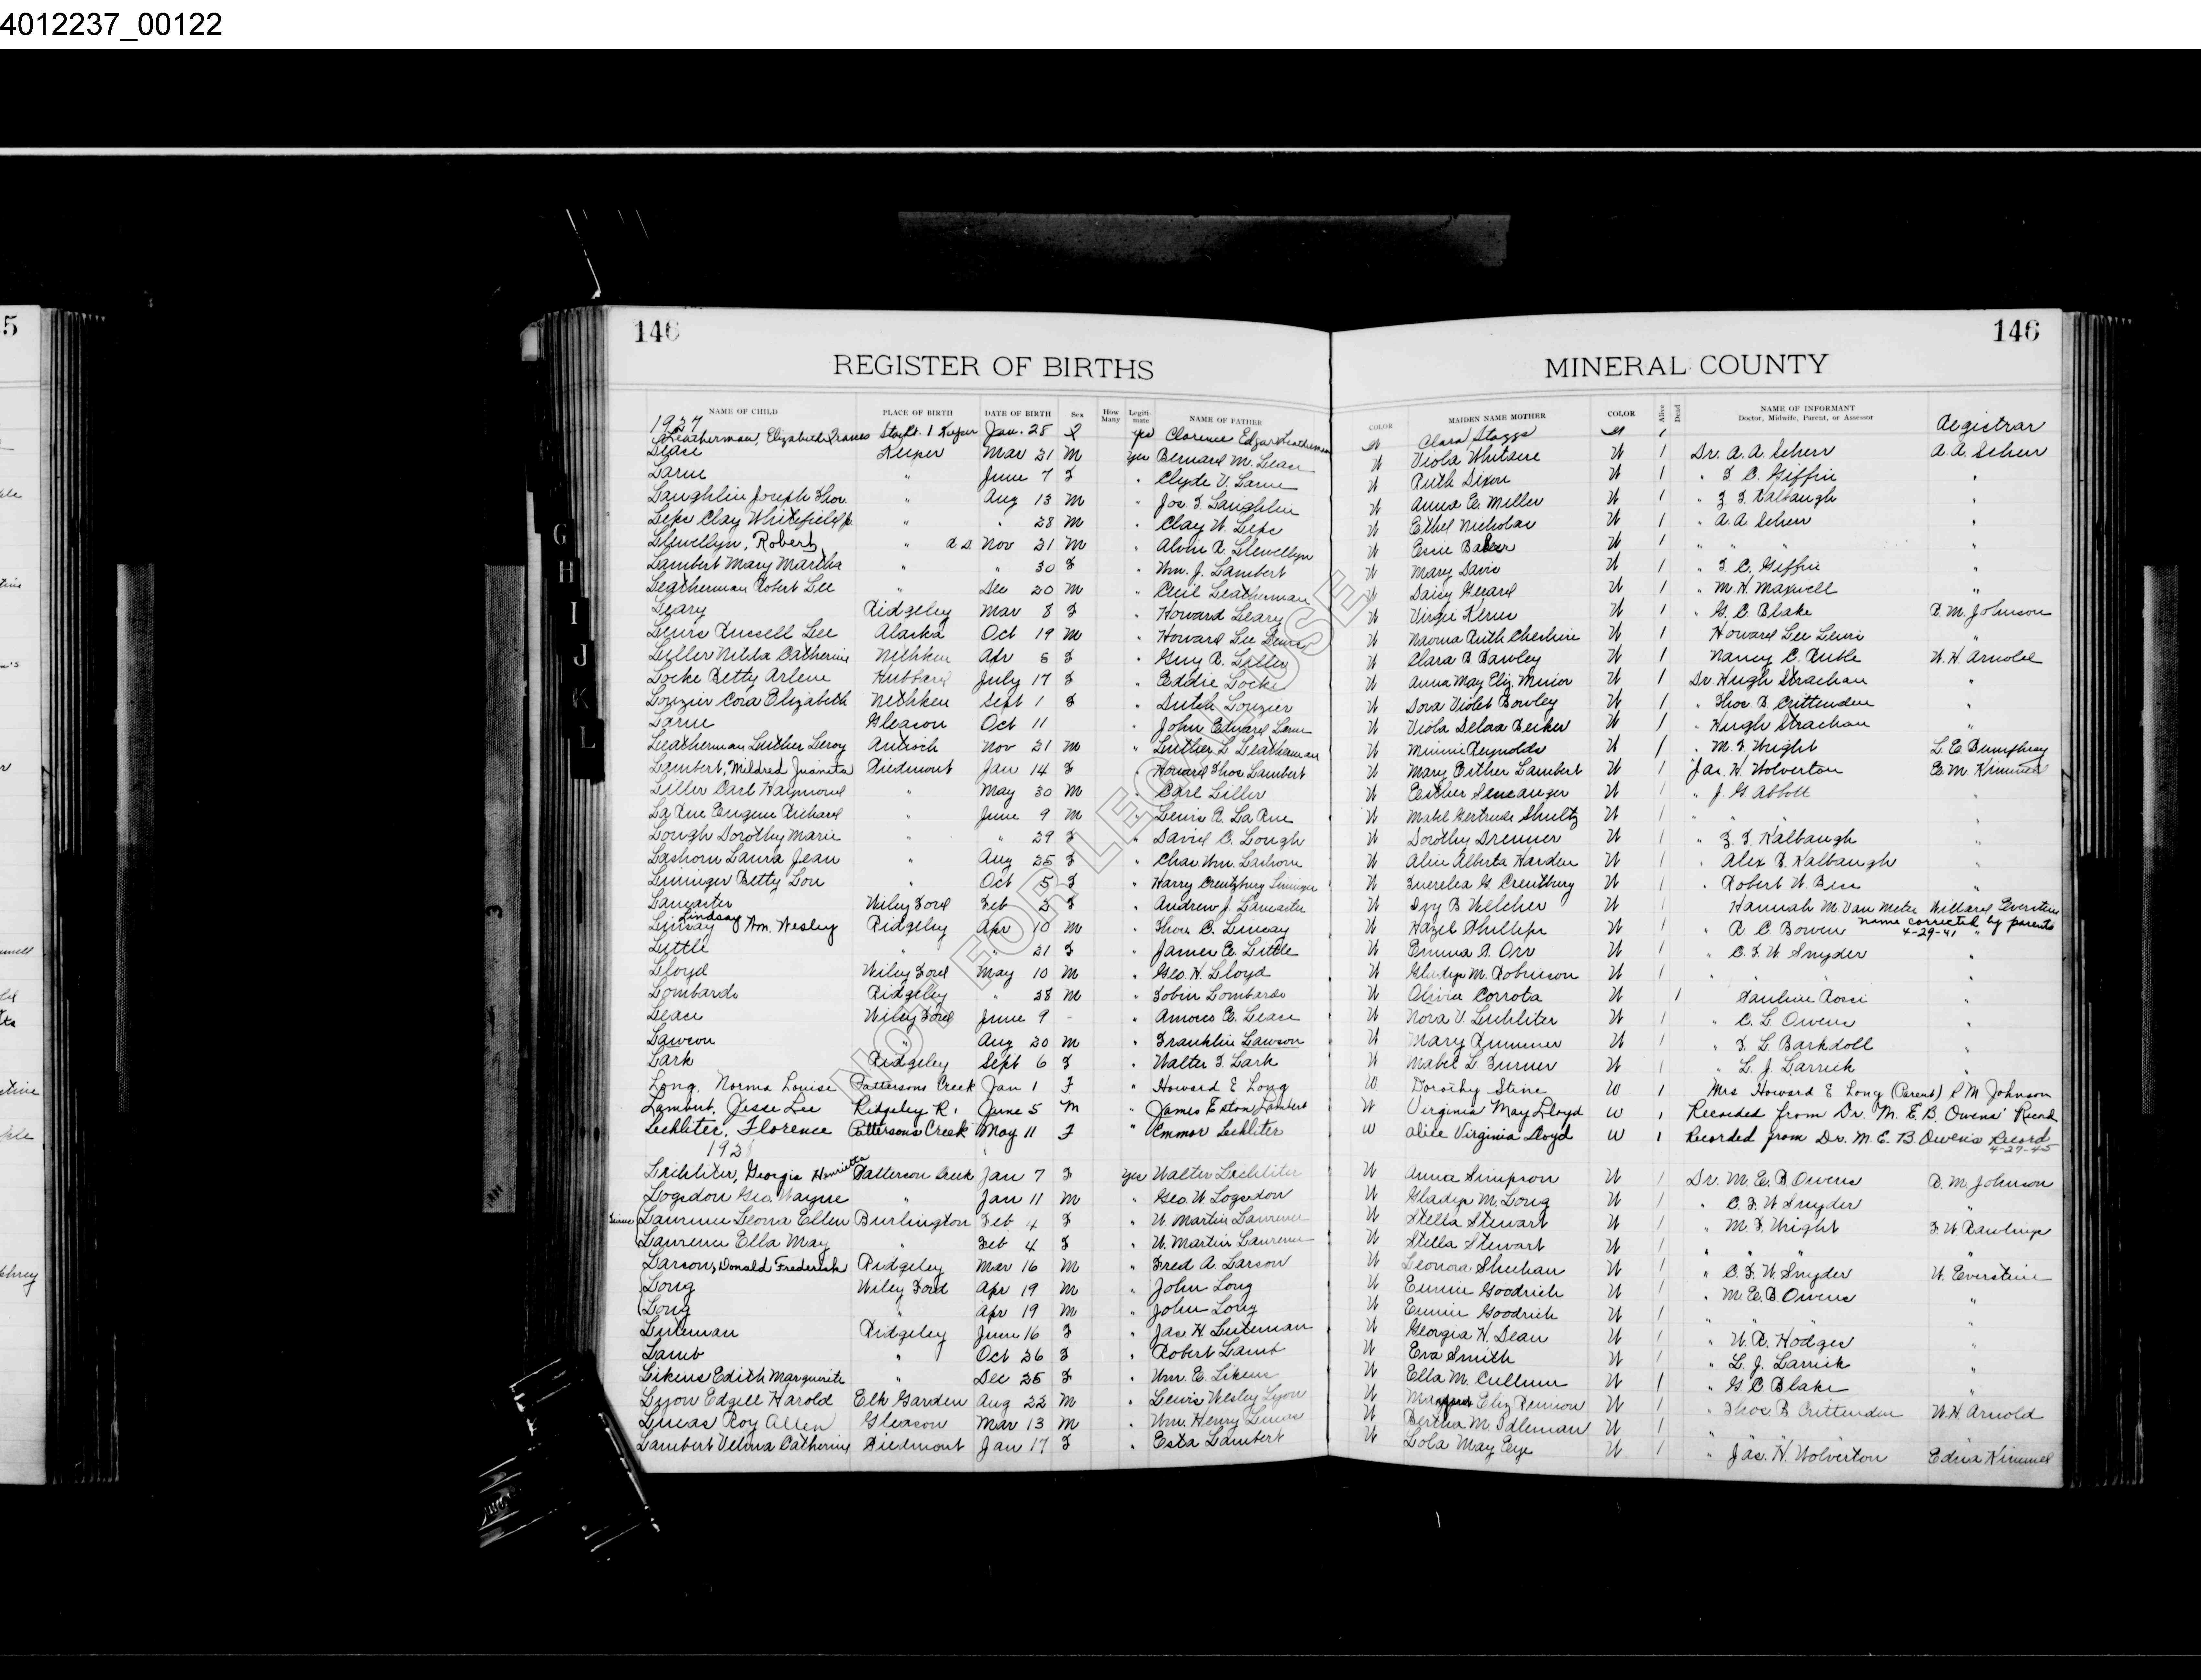 4012237_00122
5
146
146
REGISTER OF BIRTHS
MINERAL COUNTY
NAME OF CHILD PLACE OF BIRTH DATE OF BIRTH Sex How Many Legiti-mate NAME OF FATHER COLOR MAIDEN NAME MOTHER COLOR Alive Dead NAME OF INFORMANT Doctor, Midwife, Parent, or Assessor Registrar
1927
Leatherman, Elizabeth Frances Jan. 28 yes Clarence Edgar Leatherman W Clara Staggs W 1
Lease Keyser Mar 21 M Yes Bernard M. Lease W Viola Whitacre W 1 Dr. A. A. Scherr A. A. Scherr
Larue " June 7 F " Clyde V. Larue W Ruth Dixon W 1 " F. C. Giffin "
Laughlin Joseph Thos. " Aug 13 M " Jos. F. Laughlin W Anna E. Miller W 1 " Z. T. Kalbaugh "
Leps Clay Whitefield Jr. " " 28 M " Clay W. Leps W Ethel Nicholas W 1 " A. A. Scherr "
Llewellyn, Robert " Nov 21 M " Alvin R. Llewellyn W Essie Baker W 1 " " " "
Lambert Mary Martha " " 30 F " Wm. J. Lambert W Mary Davis W 1 " F. C. Giffin "
Leatherman Robert Lee " Dec 20 M " Cecil Leatherman W Daisy Gerard W 1 " M. H. Maxwell "
Leary Ridgeley Mar 8 F " Howard Leary W Virgie Kerns W 1 " G. C. Blake R. M. Johnson
Lewis Russell Lee Alaska Oct 19 M " Howard Lee Lewis W Naoma Ruth Cheshire W 1 Howard Lee Lewis "
Liller Nelda Catherine Nethken Apr 8 F " Guy R. Liller W Clara B Bawley W 1 Nancy C. Ruble W. H. Arnold
Locke Betty Arlene Hubbard July 17 F " Eddie Locke W Anna May Eliz. Minor W 1 Dr Hugh Strachan "
Louzier Cora Elizabeth Nethken Sept 1 F " Dutch Louzier W Dora Violet Bowley W 1 " Thos. B. Crittenden "
Larue Gleason Oct 11 " John Edward Larue W Viola Becker W 1 " Hugh Strachan "
Leatherman Luther Leroy Antioch Nov 21 M " Luther L Leatherman W Minnie Reynolds W 1 " M. F. Wright L. E. Bumphrey
Lambert, Mildred Juanita Piedmont Jan 14 F " Howard Thos Lambert W Mary Esther Lambert W 1 Jas. H. Wolverton E. M. Kimmel
Liller Carl Raymond " May 30 M " Carl Liller W Esther W 1 " J. G. Abbott "
La Rue Eugene Richard " June 9 M " Lewis R. La Rue W Mabel Gertrude Shultz W 1 " " " "
Lough Dorothy Marie " " 29 F " David C. Lough W Dorothy Drenner W 1 " Z. T. Kalbaugh "
Lashorn Laura Jean " Aug 25 F " Chas. Wm. Lashorn W Alice Alberta Harden W 1 " Alex B. Kalbaugh "
Lininger Betty Lou " Oct 5 F " Harry Creutzburg Lininger W G. Creutzburg W 1 " Robert W. Bess "
Lancaster Wiley Ford Feb 2 F " Andrew J. Lancaster W Ivy B Welcher W 1 Hannah M. Van Meter Willard Everstine
Linsay Lindsay Wm. Wesley Ridgeley Apr 10 M " Thos. C. Linsay W Hazel Phillips W 1 " R C Bowen name corrected by parents 4-29-41 "
Little " " 21 F " James E. Little W Emma A. Orr W 1 " C. F. W Snyder "
Lloyd Wiley Ford May 10 M " Geo. H. Lloyd W Gladys M. Robinson W 1 " " "
Lombardo Ridgeley " 28 M " Tobin Lombardo W Olivia Corrota W 1 Pauline Rossi "
Lease Wiley Ford June 9 - " Amous E. Lease W Nora V. Lechliter W 1 " C. L. Owens "
Lawson " Aug 20 M " Franklin Lawson W Mary Rummer W 1 " F. L. Barkdoll "
Lark Ridgeley Sept 6 F " Walter F. Lark W Mabel L Turner W 1 " L. J. Larrick "
Long, Norma Louise Pattersons Creek Jan 1 F " Howard E Long W Dorothy Stine W 1 Mrs Howard E Long (Parent) R M Johnson
Lambert, Jesse Lee Ridgeley R 1 June 5 M " James Eston Lambert W Virginia May Lloyd W 1 Recorded from Dr. M. E. B. Owens' Record
Lechliter, Florence Pattersons Creek May 11 F " Emmor Lechliter W Alice Virginia Lloyd W 1 Recorded from Dr. M. E. B Owens Record 4-27-45
192
Lechliter, Georgia Henrietta Patterson Creek Jan 7 F Yes Walter Lechliter W Anna Simpson W 1 Dr. M. E. B Owens R. M. Johnson
Logsdon Geo. Wayne " Jan 11 M " Geo. W Logsdon W Gladys M. Long W 1 " C. F. W Snyder "
Twins Laurence Leona Ellen Burlington Feb 4 F " W. Martin Laurence W Stella Stewart W 1 " M. F. Wright F. W Rawlings
Laurence Ella May " Feb 4 F " W. Martin Laurence W Stella Stewart W 1 " " " "
Larson, Donald Frederick Ridgeley Mar 16 M " Fred A. Larson W Leonora Sheehan W 1 " C. F. W. Snyder W. Everstine
Long Wiley Ford Apr 19 M " John Long W Eunice Goodrich W 1 " M. E. B Owens "
Long " Apr 19 M " John Long W Eunice Goodrich W 1 " " " "
Luteman Ridgeley June 16 F " Jas H. Luteman W Georgia H. Dean W 1 " W. R. Hodges "
Lamb " Oct 26 F " Robert Lamb W Eva Smith W 1 " L. J. Larrick "
Likens Edith Marguerite " Dec 25 F " Wm. E. Likens W Ella M. Cullum W 1 " G C Blake "
Lyon Edgell Harold Elk Garden Aug 22 M " Lewis Wesley Lyon W Margaret Eliz W 1 " Thos. B Crittenden W. H Arnold
Lucas Roy Allen Gleason Mar 13 M " Wm. Henry Lucas W Bertha M. Idleman W 1 " " "
Lambert Velma Catherine Piedmont Jan 17 F " Esta Lambert W Lola May Eye W 1 " Jas. H. Wolverton Edna Kimmel
G
H
I
J
K
L
3
NOT FOR LEGAL USE